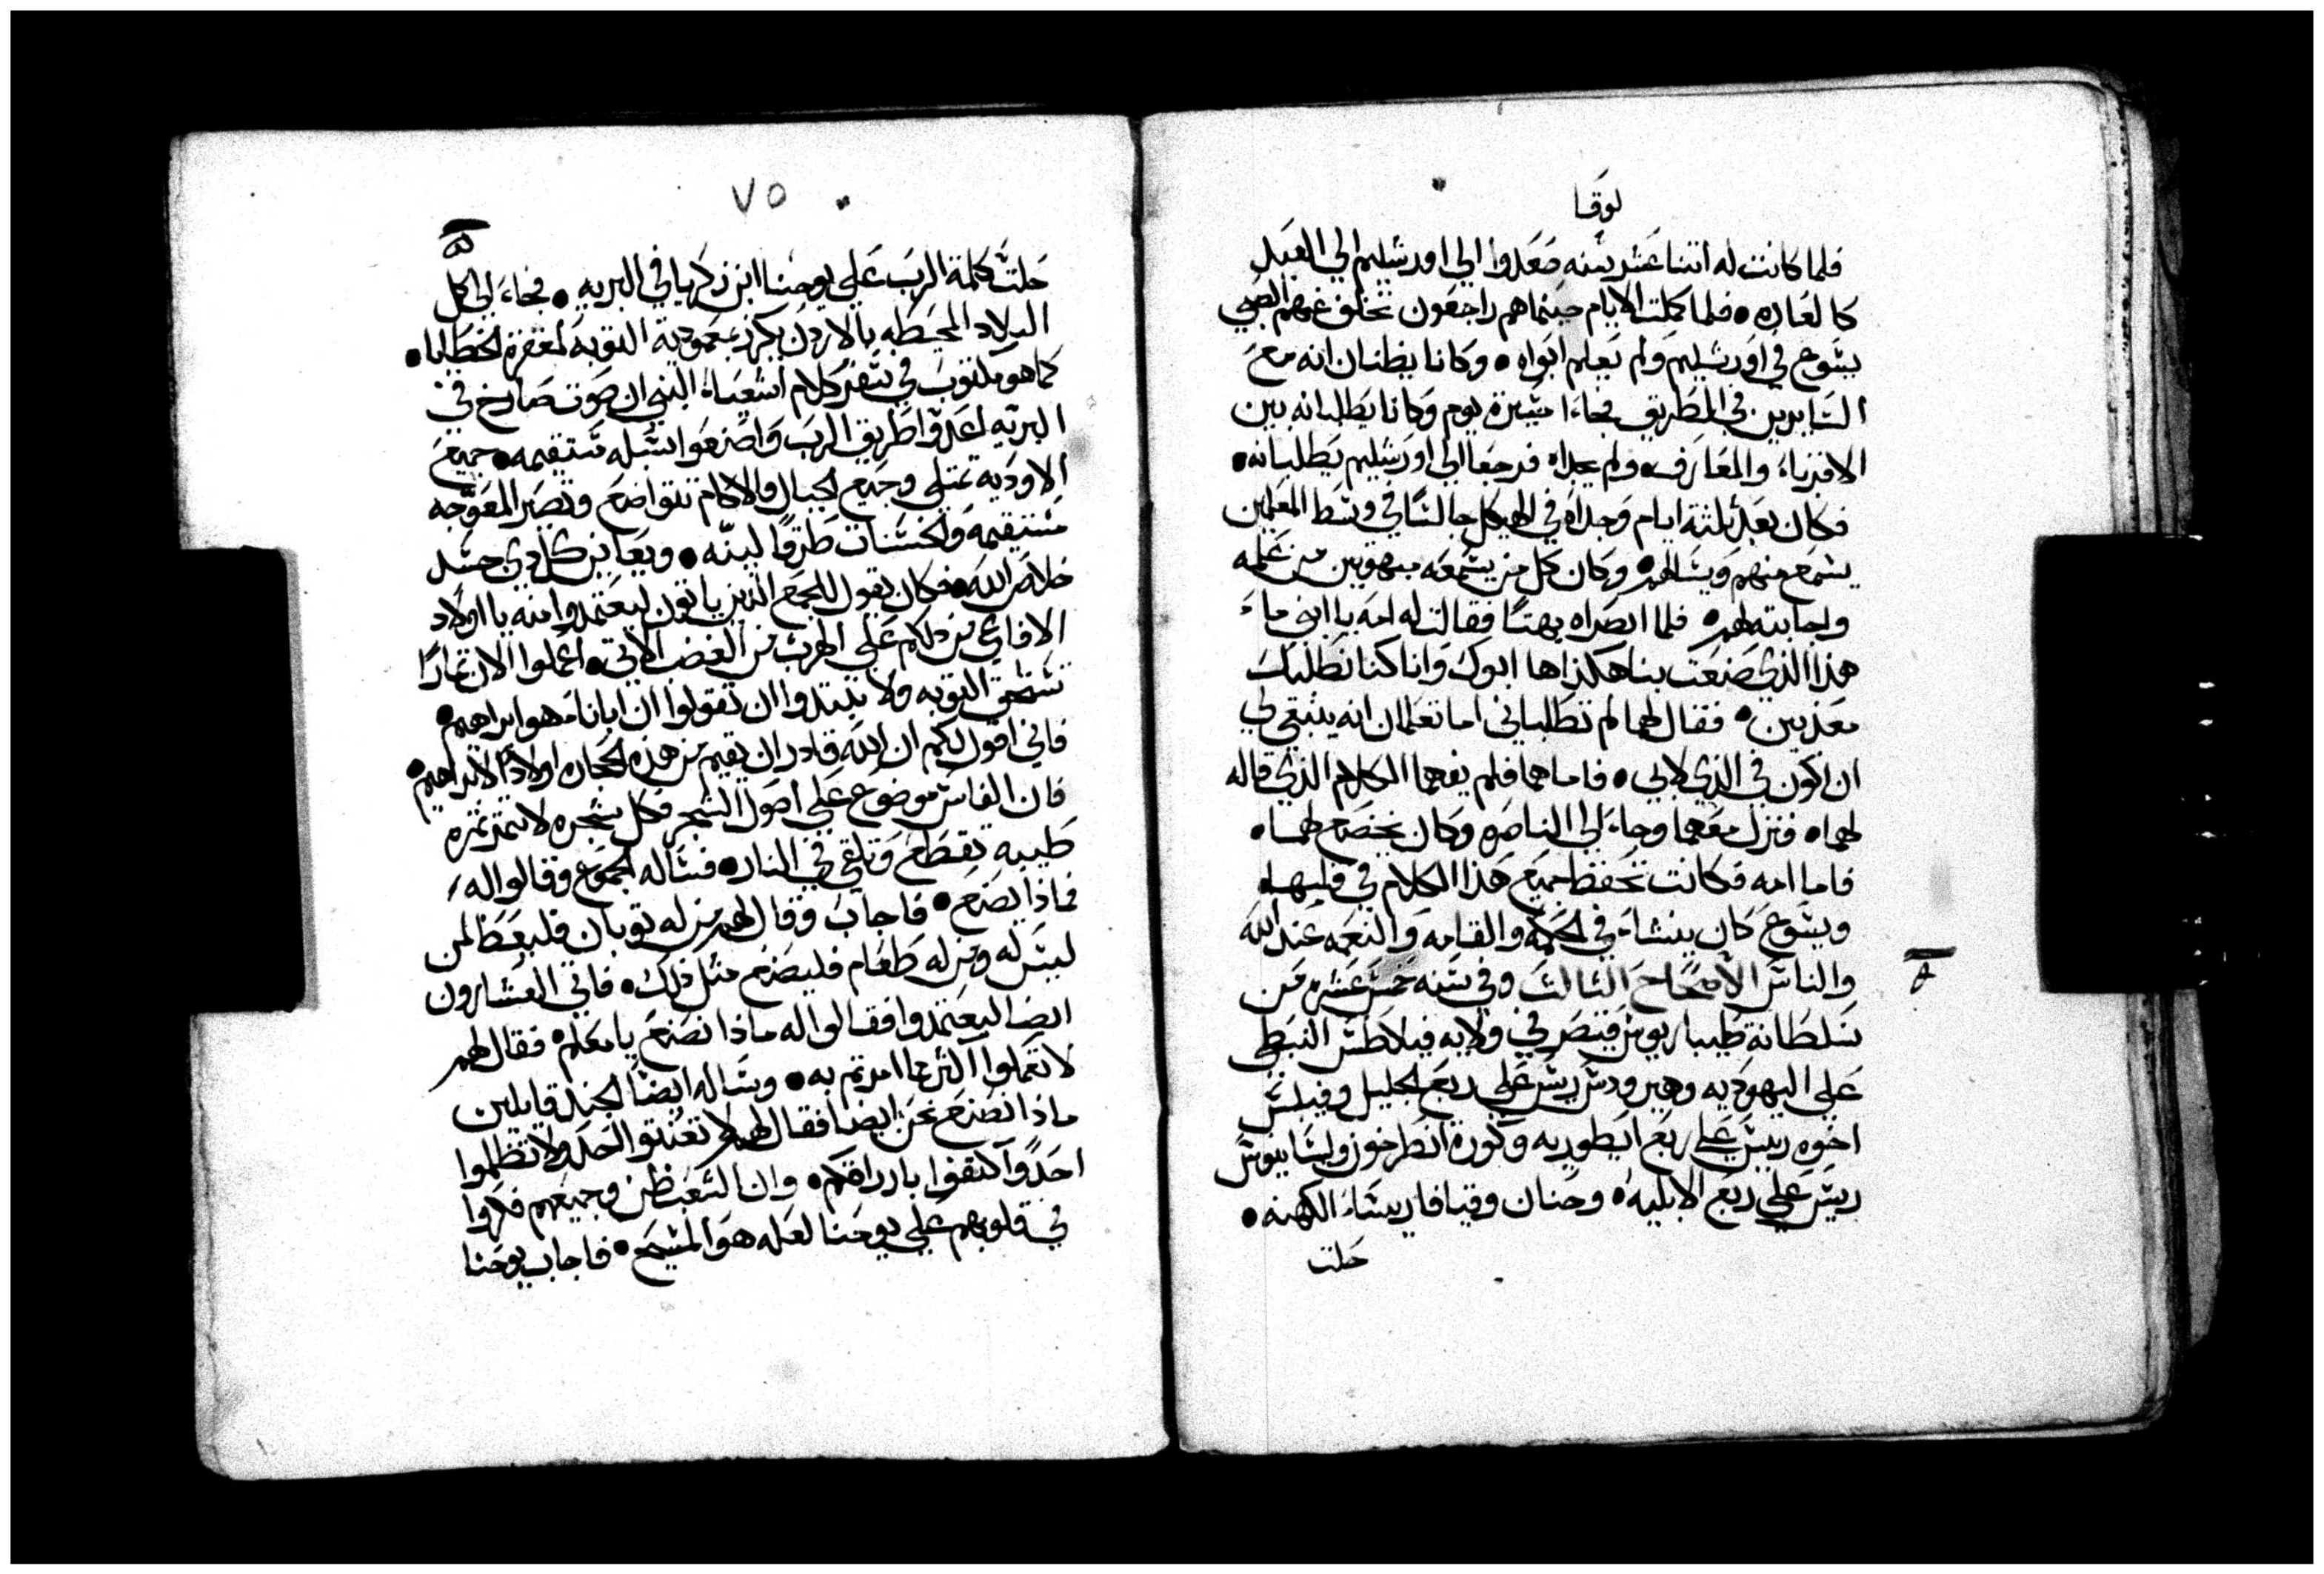 لوقا
فلما كانت له اتنتا عشر سنه صعدوا الي اورشليم الي العيد
كالعاده • فلما كملت الايام حينماهم راجعون تخلف عنهم الصبي
يسوع في اورشليم ولم يعلم ابواه • وكانا يظنان انه مع
السايرين في الطريق فجاءا مسيرة يوم وكانا يطلبانه بين
الاقرباء والمعارف ولم يجداه فرجعا الي اورشليم يطلبانه •
فكان بعد ثلثة ايام وجداه في الهيكل جالسا في وسط المعلمين
يسمع منهم ويسالهم • وكان كل من يسمعه مبهوتين من علمه
واجابته لهم • فلما ابصراه بهتا فقالت له امه يا ابني ما
هذا الذي صنعت بنا هكذا ها ابوك وانا كنا نطلبك
معذبين • فقال لهما لم تطلباني اما تعلمان انه ينبغي لي
ان اكون في الذي لابي • فاما هما فلم يفهما الكلام الذي قاله
لهما • فنزل معهما وجاء الي الناصره وكان يخضع لهما •
فاما امه فكانت تحفظ جميع هذا الكلام في قلبها •
ويسوع كان ينشاء في الحكمه والقامه والنعمه عند الله
والناس الاصحاح الثالث وفي سنه خمس عشره من
سلطانة طيباريوس قيصر في ولايه فيلاطس النبطي
علي اليهوديه وهيرودس ريس علي ربع الجليل وفيلبس
اخوه رييس علي ربع ايطوريه وكورة انطرخون وليسانيوس
ريس علي ربع الابليه • وحنان وقيافا ريساء الكهنه •
حلت
٧٥
حلت كلمة الرب علي يوحنا ابن زكريا في البريه • فجاء الي كل
البلاد المحيطه بالاردن يكرز بمعمودية التوبه لمغفرة الخطايا •
كما هو مكتوب في سفر كلام اشعياء النبي ان صوت صارخ في
البريه اعدوا طريق الرب واصنعوا سبله مستقيمه • جميع
الاوديه تمتلي وجميع الجبال والاكام تتواضع وتصير المعوجه
مستقيمه والخشنات طرقا لينه • ويعاين كل ذي جسد
خلاص الله • فكان يقول للجمع الذين ياتون ليعتمدوا منه يا اولاد
الافاعي من دلكم علي الهرب من الغضب الاتي • اعملوا الان تمارا
تستحق التوبه ولا تبتدوا ان تقولوا ان ابانا هو ابراهيم •
فاني اقول لكم ان الله قادر ان يقيم من هذه الحجاره اولادا لابراهيم •
فان الفاس موضوع علي اصول الشجر فكل شجره لا تتمر تمره
طيبه تقطع وتلقي في النار • فساله الجموع وقالوا له
فماذا نصنع • فاجاب وقال لهم من له توبان فليعط لمن
ليس له ومن له طعام فليصنع متل ذلك • فاتي العشارون
ايضا ليعتمدوا فقالوا له ماذا نصنع يا معلم • فقال لهم
لا تعملوا اكثر مما امرتم به • وساله ايضا الجند قايلين
ماذا نصنع نحن ايضا فقال لهم لا تعنتوا احد ولا تظلموا
احدا واكتفوا بارزاقكم • وان الشعب ظن وجميعهم فكروا
في قلوبهم علي يوحنا لعله هو المسيح • فاجاب يوحنا